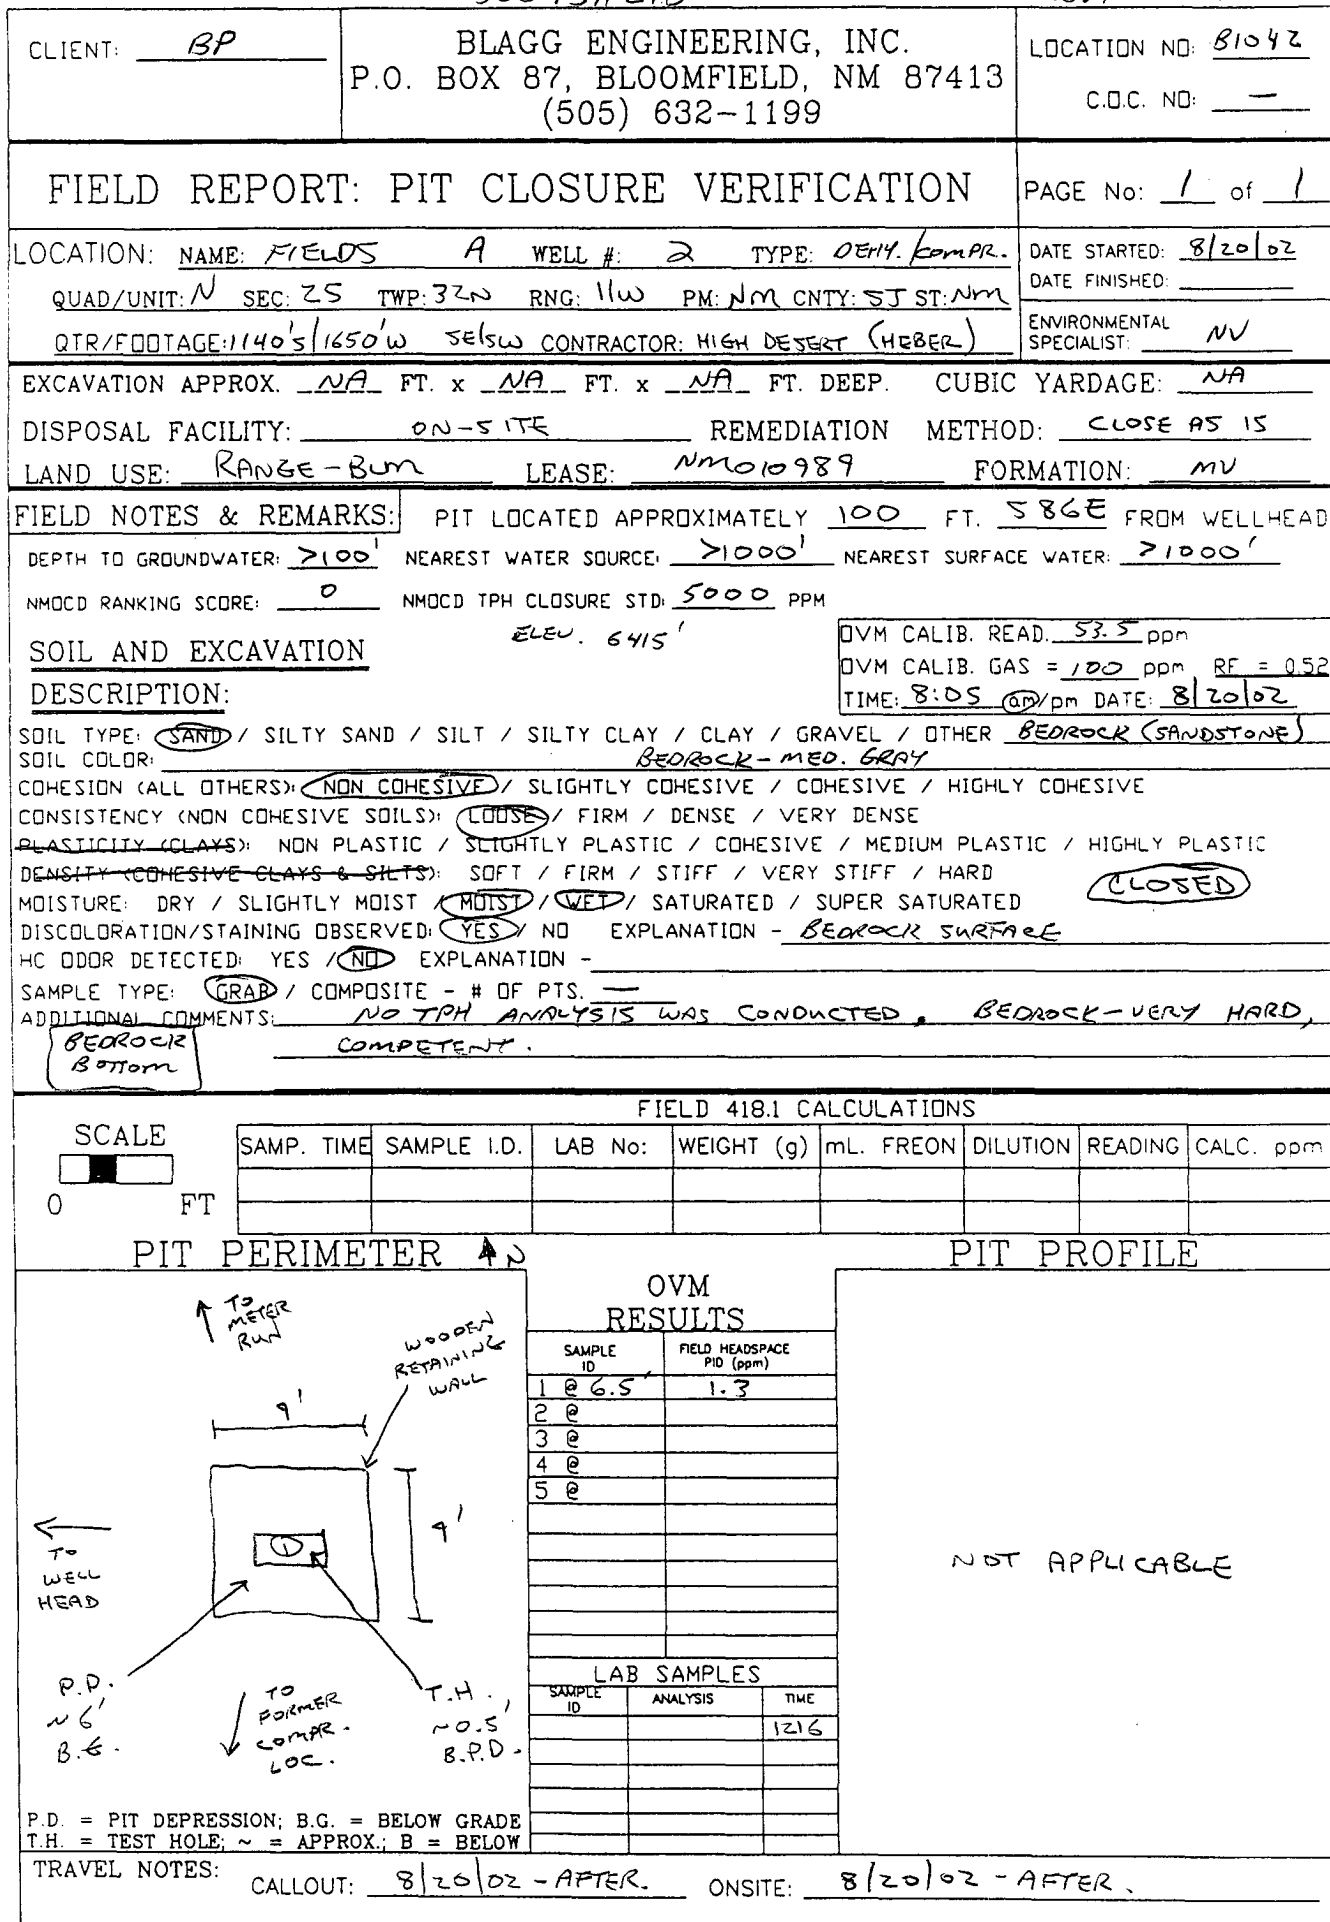 CLIENT: BP
BLAGG ENGINEERING, INC.
P.O. BOX 87, BLOOMFIELD, NM 87413
(505) 632-1199
LOCATION NO: B1042
C.O.C. NO: —
FIELD REPORT: PIT CLOSURE VERIFICATION
PAGE No: 1 of 1
LOCATION: NAME: FIELDS A WELL #: 2 TYPE: DEHY./COMPR.
QUAD/UNIT: N SEC: 25 TWP: 32N RNG: 11W PM: NM CNTY: SJ ST: NM
QTR/FOOTAGE: 1140'S/1650'W SE/SW CONTRACTOR: HIGH DESERT (HEBER)
DATE STARTED: 8/20/02
DATE FINISHED:
ENVIRONMENTAL
SPECIALIST: NV
EXCAVATION APPROX. NA FT. x NA FT. x NA FT. DEEP. CUBIC YARDAGE: NA
DISPOSAL FACILITY: ON-SITE REMEDIATION METHOD: CLOSE AS IS
LAND USE: RANGE-BLM LEASE: NM010989 FORMATION: MV
FIELD NOTES & REMARKS: PIT LOCATED APPROXIMATELY 100 FT. S86E FROM WELLHEAD
DEPTH TO GROUNDWATER: >100' NEAREST WATER SOURCE: >1000' NEAREST SURFACE WATER: >1000'
NMOCD RANKING SCORE: 0 NMOCD TPH CLOSURE STD: 5000 PPM
ELEV. 6415'
SOIL AND EXCAVATION
DESCRIPTION:
OVM CALIB. READ. 53.5 ppm
OVM CALIB. GAS = 100 ppm RF = 0.52
TIME: 8:05 am/pm DATE: 8/20/02
SOIL TYPE: SAND / SILTY SAND / SILT / SILTY CLAY / CLAY / GRAVEL / OTHER BEDROCK (SANDSTONE)
SOIL COLOR: BEDROCK-MED. GRAY
COHESION (ALL OTHERS): NON COHESIVE / SLIGHTLY COHESIVE / COHESIVE / HIGHLY COHESIVE
CONSISTENCY (NON COHESIVE SOILS): LOOSE / FIRM / DENSE / VERY DENSE
PLASTICITY (CLAYS): NON PLASTIC / SLIGHTLY PLASTIC / COHESIVE / MEDIUM PLASTIC / HIGHLY PLASTIC
DENSITY (COHESIVE CLAYS & SILTS): SOFT / FIRM / STIFF / VERY STIFF / HARD
CLOSED
MOISTURE: DRY / SLIGHTLY MOIST / MOIST / WET / SATURATED / SUPER SATURATED
DISCOLORATION/STAINING OBSERVED: YES / NO EXPLANATION - BEDROCK SURFACE
HC ODOR DETECTED: YES / NO EXPLANATION -
SAMPLE TYPE: GRAB / COMPOSITE - # OF PTS. —
ADDITIONAL COMMENTS: NO TPH ANALYSIS WAS CONDUCTED. BEDROCK-VERY HARD,
COMPETENT.
BEDROCK
BOTTOM
FIELD 418.1 CALCULATIONS
SCALE
0 FT
SAMP. TIME SAMPLE I.D. LAB No: WEIGHT (g) mL. FREON DILUTION READING CALC. ppm
PIT PERIMETER N
PIT PROFILE
TO
METER
RUN
WOODEN
RETAINING
WALL
9'
9'
1
TO
WELL
HEAD
P.D.
~6'
B.G.
TO
FORMER
COMPR.
LOC.
T.H.
~0.5'
B.P.D.
P.D. = PIT DEPRESSION; B.G. = BELOW GRADE
T.H. = TEST HOLE; ~ = APPROX.; B = BELOW
OVM
RESULTS
SAMPLE ID FIELD HEADSPACE PID (ppm)
1 @ 6.5' 1.3
2 @
3 @
4 @
5 @
LAB SAMPLES
SAMPLE ID ANALYSIS TIME
1216
NOT APPLICABLE
TRAVEL NOTES: CALLOUT: 8/20/02 - AFTER. ONSITE: 8/20/02 - AFTER.